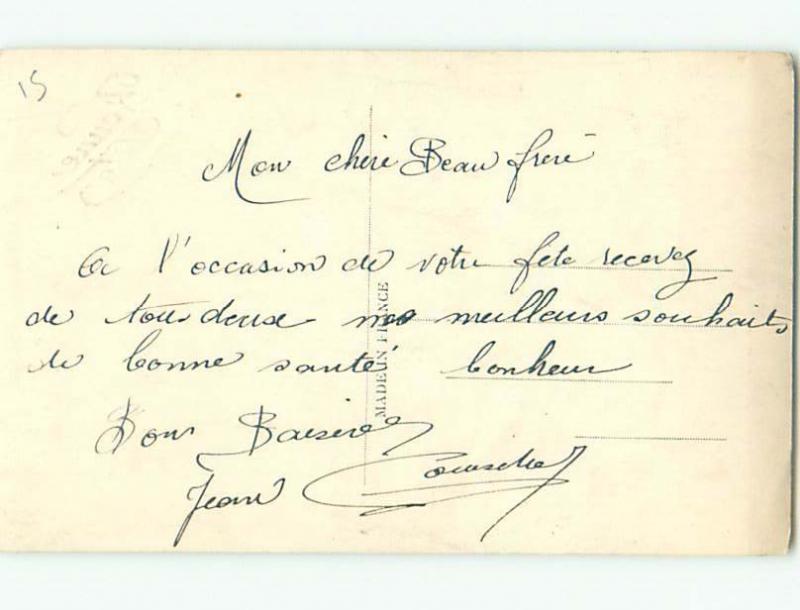 15
Mon chère Beau frère
A l'occasion de votre fete recevez
de tou deuse mes meilleurs souhaits
de bonne santé bonheur
Bons Baisers
Jean
MADE IN FRANCE